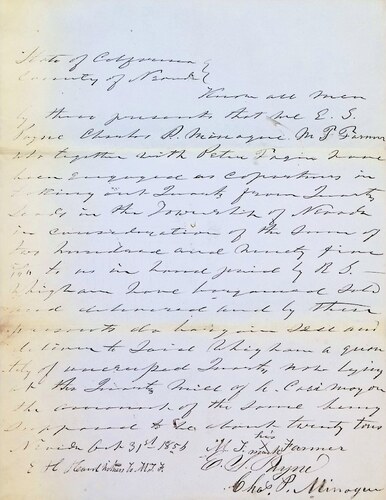 State of California }
County of Nevada }
Know all men
by these presents that we E. S.
Payne Charles P. Minogue M T Farmer
who together with Peter have
been Engaged as Copartners in
out Quartz from Quartz
Leads in the Township of Nevada
in consideration of the Sum of
Two hundred and ninety five
to us in hand paid by R. S.
Whigham have bargained Sold
and delivered and by these
presents do bargain Sell and
deliver to Said Whigham a quan
tity of Quartz now lying
at the Quartz Mill of A. on
the amount of the Same being
Supposed to be about twenty tons
Nevada Oct 31st 1856
his
M. T. mark Farmer
E H witness to M. T. F.
E. S. Payne
Chas. P. Minogue